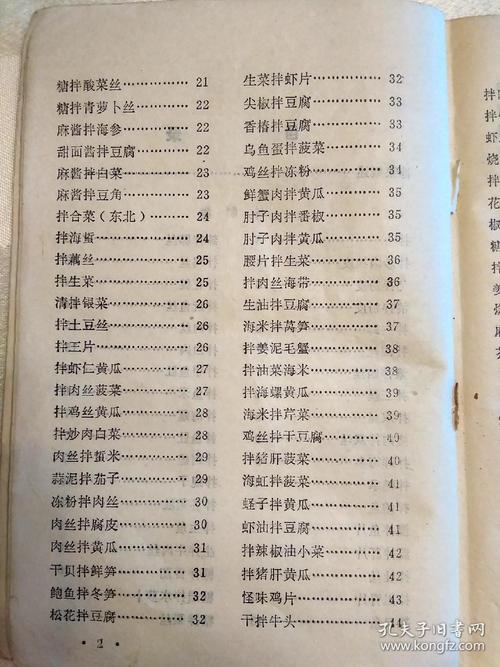 糖拌酸菜丝…………… 21
糖拌青萝卜丝………… 22
麻酱拌海参…………… 22
甜面酱拌豆腐………… 22
麻酱拌白菜…………… 23
麻酱拌豆角…………… 23
拌合菜（东北）……… 24
拌海蜇………………… 24
拌藕丝………………… 25
拌生菜………………… 25
清拌银菜……………… 26
拌土豆丝……………… 26
拌三片………………… 26
拌虾仁黄瓜…………… 27
拌肉丝菠菜…………… 27
拌鸡丝黄瓜…………… 28
拌炒肉白菜…………… 28
肉丝拌蜇米…………… 29
蒜泥拌茄子…………… 29
冻粉拌肉丝…………… 30
肉丝拌腐皮…………… 30
肉丝拌黄瓜…………… 31
干贝拌鲜笋…………… 31
鲍鱼拌冬笋…………… 32
松花拌豆腐…………… 32
生菜拌虾片…………… 32
尖椒拌豆腐…………… 33
香椿拌豆腐…………… 33
乌鱼蛋拌菠菜………… 34
鸡丝拌冻粉…………… 34
鲜蟹肉拌黄瓜………… 35
肘子肉拌番椒………… 35
肘子肉拌黄瓜………… 35
腰片拌生菜…………… 36
拌肉丝海带…………… 36
生油拌豆腐…………… 37
海米拌莴笋…………… 37
拌姜泥毛蟹…………… 38
拌油菜海米…………… 38
拌海螺黄瓜…………… 39
海米拌芹菜…………… 39
鸡丝拌干豆腐………… 40
拌猪肝菠菜…………… 40
海虹拌菠菜…………… 41
蛏子拌黄瓜…………… 41
虾油拌豆腐…………… 41
拌辣椒油小菜………… 42
拌猪肝黄瓜…………… 42
怪味鸡片……………… 43
干拌牛头……………… 44
· 2 ·
孔夫子旧书网
www.kongfz.com